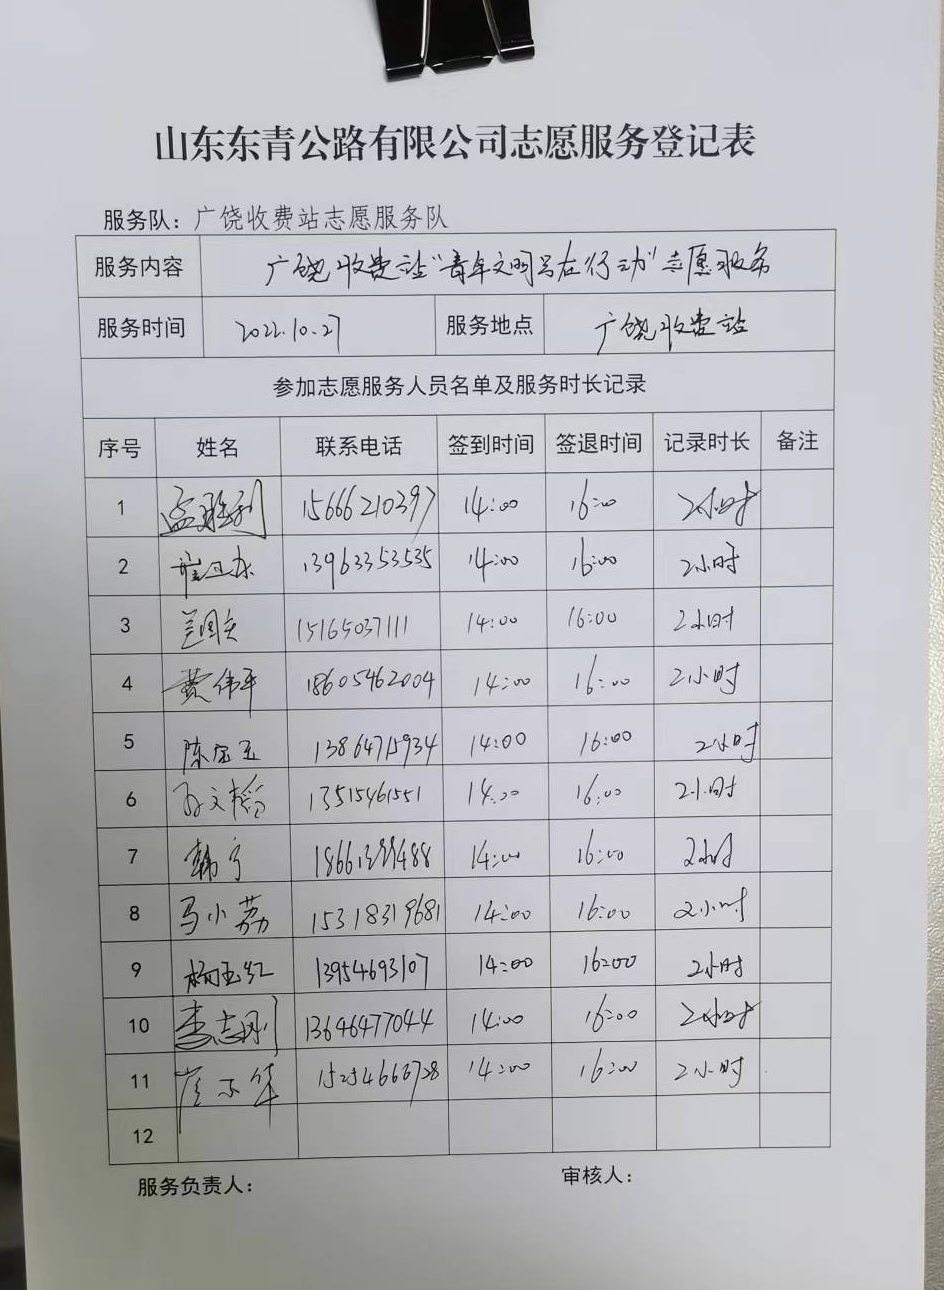 山东东青公路有限公司志愿服务登记表
服务队：广饶收费站志愿服务队
服务内容 广饶收费站"青年文明号在行动"志愿服务
服务时间 2022.10.27 服务地点 广饶收费站
参加志愿服务人员名单及服务时长记录
序号 姓名 联系电话 签到时间 签退时间 记录时长 备注
1 孟胜利 15666210397 14:00 16:00 2小时
2 13963353535 14:00 16:00 2小时
3 15165037111 14:00 16:00 2小时
4 费伟平 18605462004 14:00 16:00 2小时
5 13864715934 14:00 16:00 2小时
6 孙文韬 13515461551 14:00 16:00 2小时
7 韩宁 14:00 16:00 2小时
8 马小荔 15318319681 14:00 16:00 2小时
9 杨玉红 13954693107 14:00 16:00 2小时
10 李志刚 13646477044 14:00 16:00 2小时
11 15254666728 14:00 16:00 2小时
12
服务负责人： 审核人：